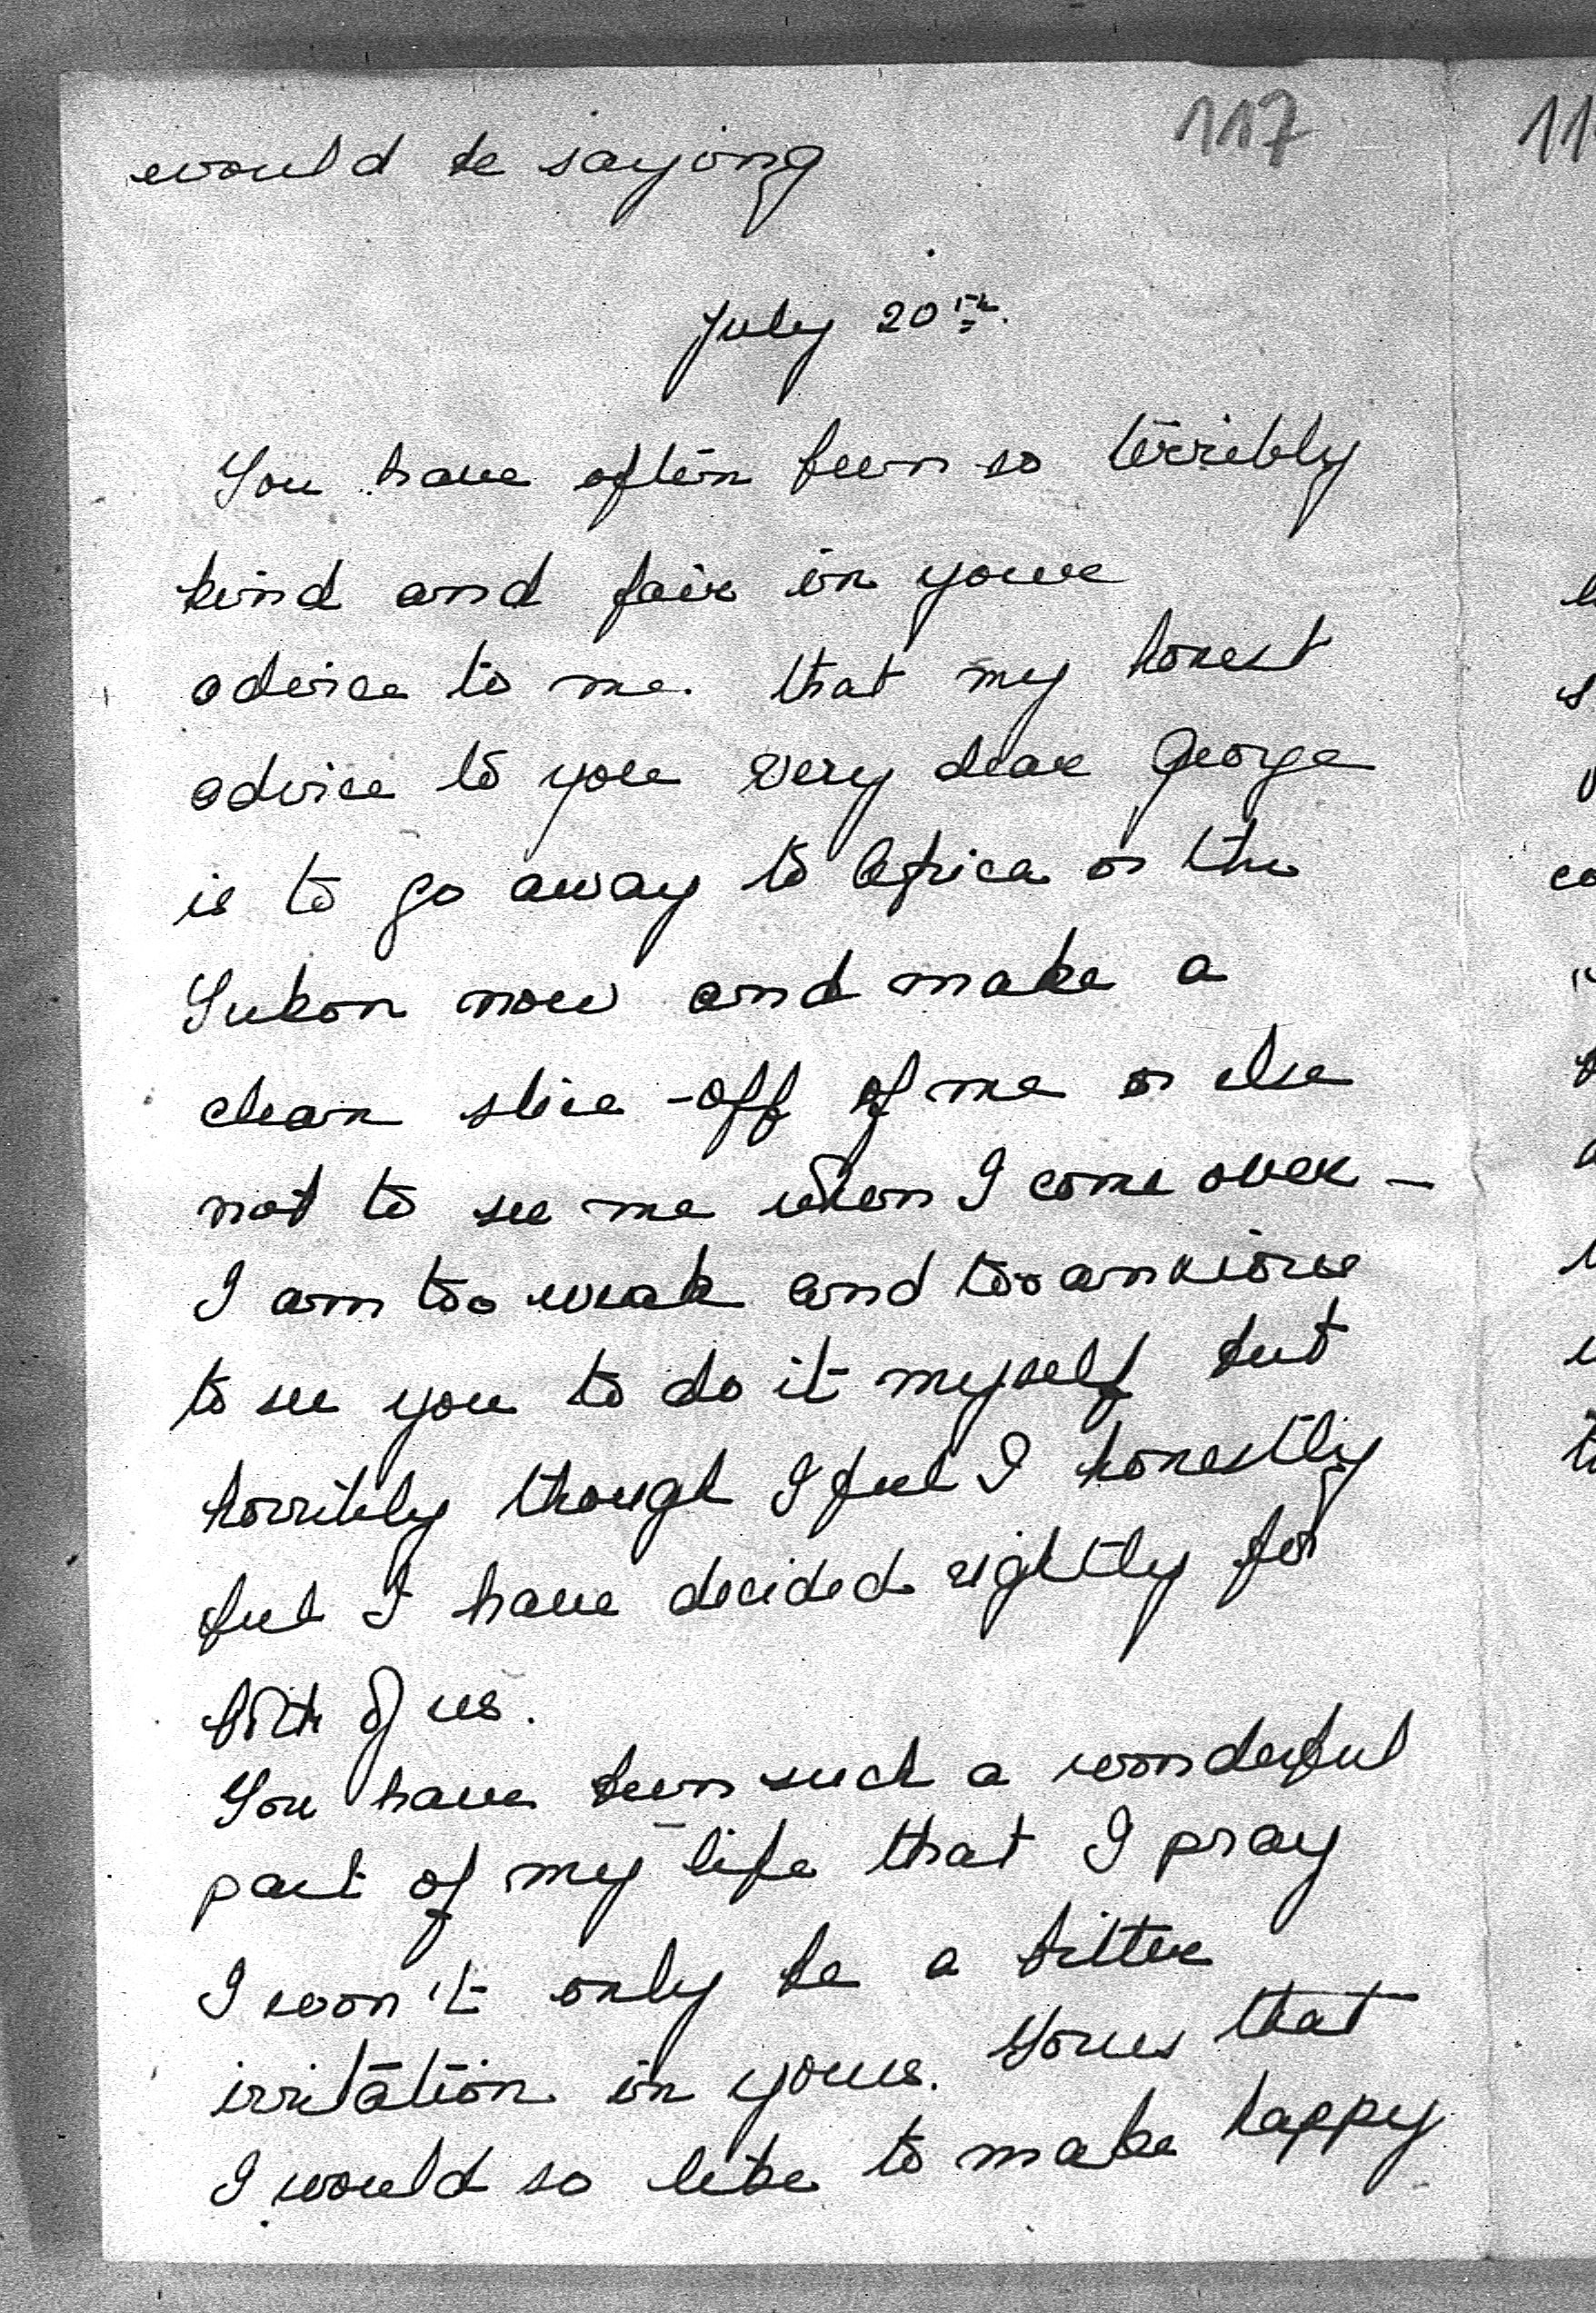 117
would be saying
July 20th.
You have often been so terribly
kind and fair in your
advice to me. that my honest
advice to you very dear George
is to go away to Africa or the
Yukon now and make a
clean slice-off of me or else
not to see me when I come over -
I am too weak and too anxious
to see you to do it myself but
horribly though I feel I honestly
feel I have decided rightly for
both of us.
You have been such a wonderful
part of my life that I pray
I won't only be a bitter
irritation in yours. Yours that
I would so like to make happy